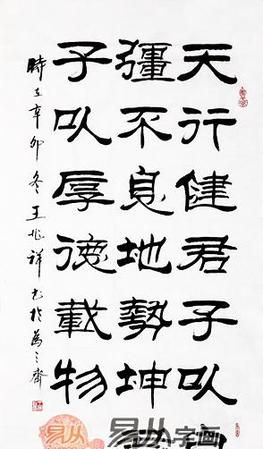 天行健君子以自
彊不息地勢坤君
子以厚德載物
時在辛卯冬王兆祥书於
易从字画